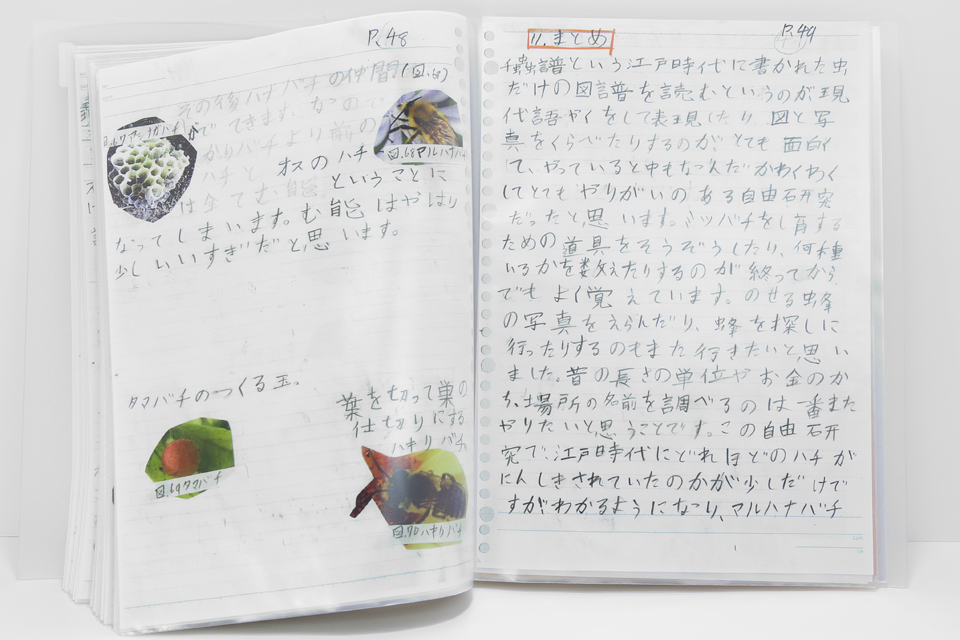 P.48
その後ハナバチの仲間(図.68)
がでてきます。なので
かりバチより前の
図.68マルハナバチ
オスのハチ
ハチと
は全てむ能ということに
なってしまいます。む能はやはり
少しいいすぎだと思います。
タマバチのつくる玉。
図.69タマバチ
葉を切って巣の
仕切りにする
ハキリバチ
図.70ハキリバチ
P.49
11.まとめ
千蟲譜という江戸時代に書かれた虫
だけの図譜を読むというのが現
代語やくをして表現したり、図と写
真をくらべたりするのがとても面白く
て、やっていると中もなんだかわくわく
してとてもやりがいのある自由研究
だったと思います。ミツバチをし育する
ための道具をそうぞうしたり、何種
いるかを数えたりするのが終ってから
でもよく覚えています。のせる蜂
の写真をえらんだり、蜂を探しに
行ったりするのもまた行きたいと思い
ました。昔の長さの単位やお金のか
ち、場所の名前を調べるのは一番また
やりたいと思うことです。この自由研
究で、江戸時代にどれほどのハチが
にんしきされていたのかが少しだけで
すがわかるようになり、マルハナバチ